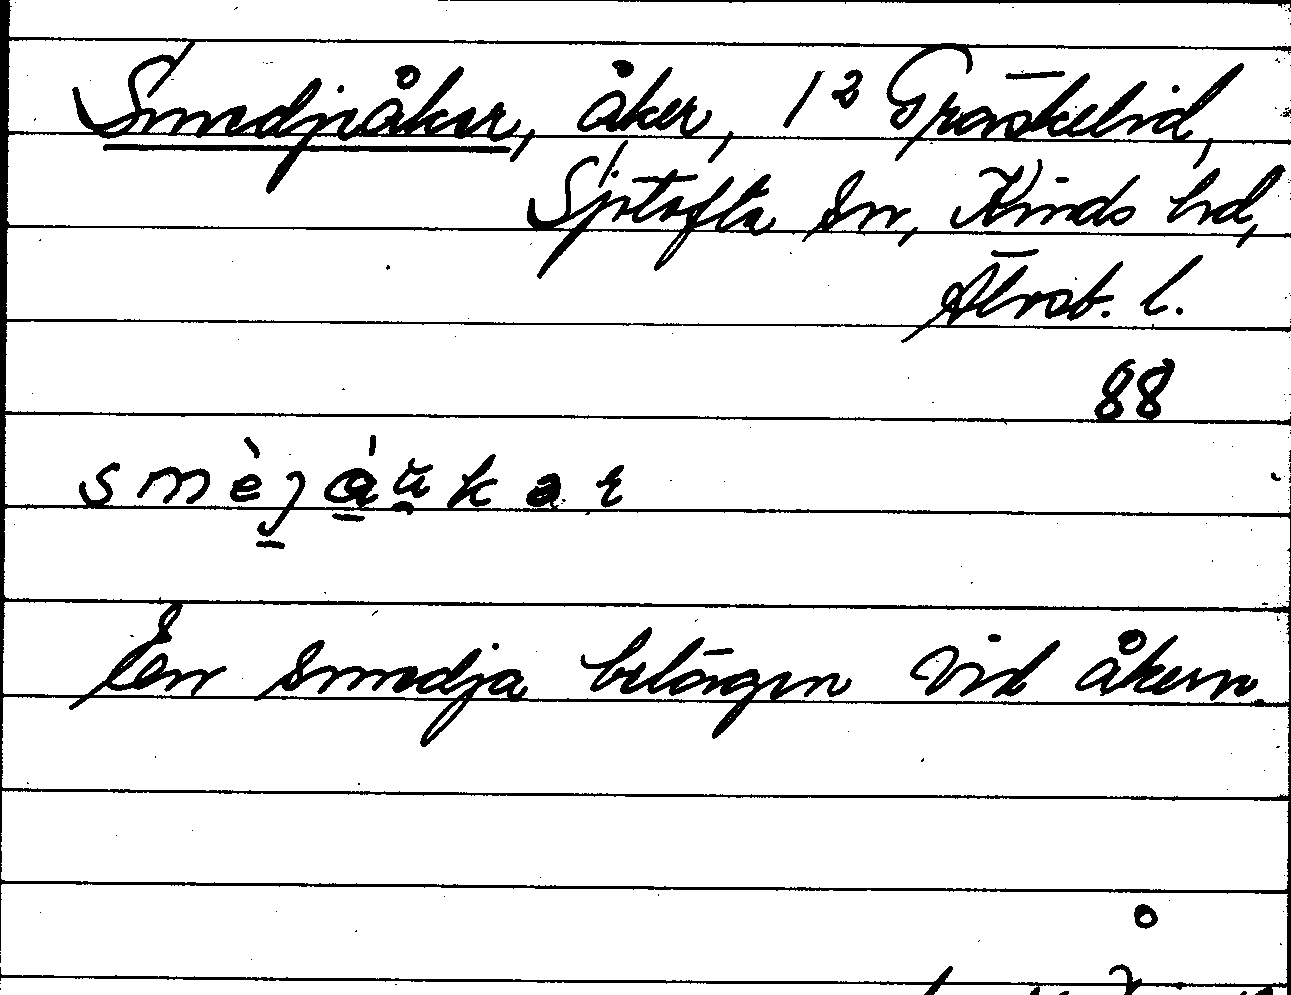 Smedjeåker, åker, 1² Gräskelid,
Sjötofta sn, Kinds hd,
Älvsb. l.
88
smèjáu̯kər
En smedja belägen vid åkern.